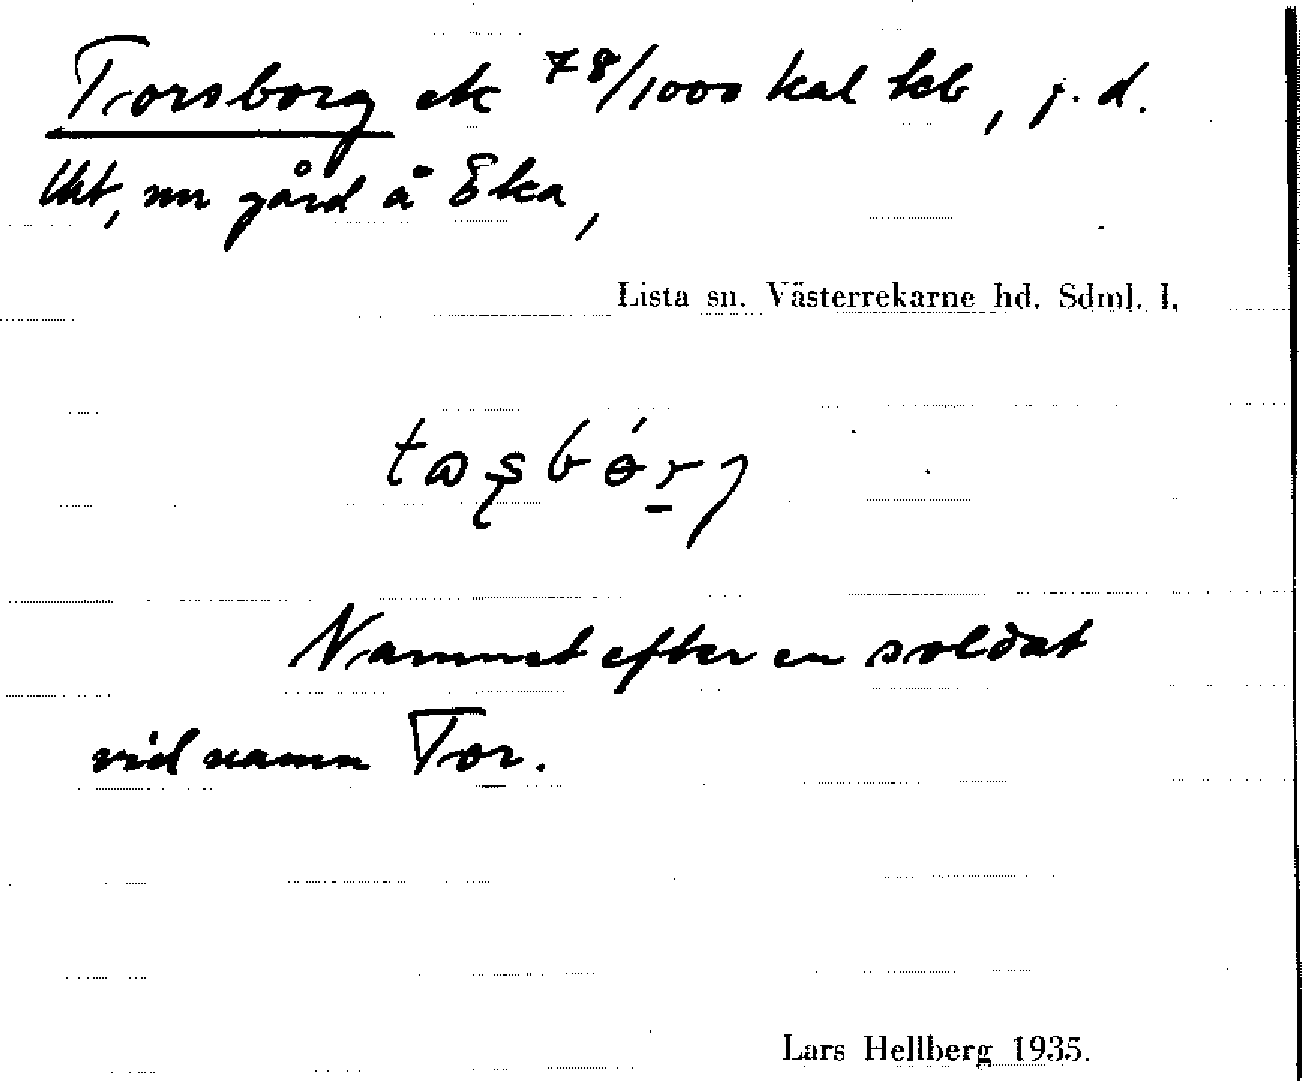 Torsborg ek 78/1000 kat kb, j. d.
Ukt, nu gård å Eka,
Lista sn. Västerrekarne hd. Sdml. l.
Namnet efter en soldat
vid namn Tor.
Lars Hellberg 1935.